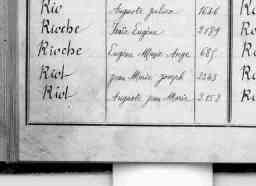 Rio Auguste Julien 1646 Ri
Rioche Eugène 2189 Ri
Rioche Eugène Marie Ange 685 Ri
Riot Jean Marie Joseph 2263 Ri
Riot Auguste Jean Marie 2152 Ri